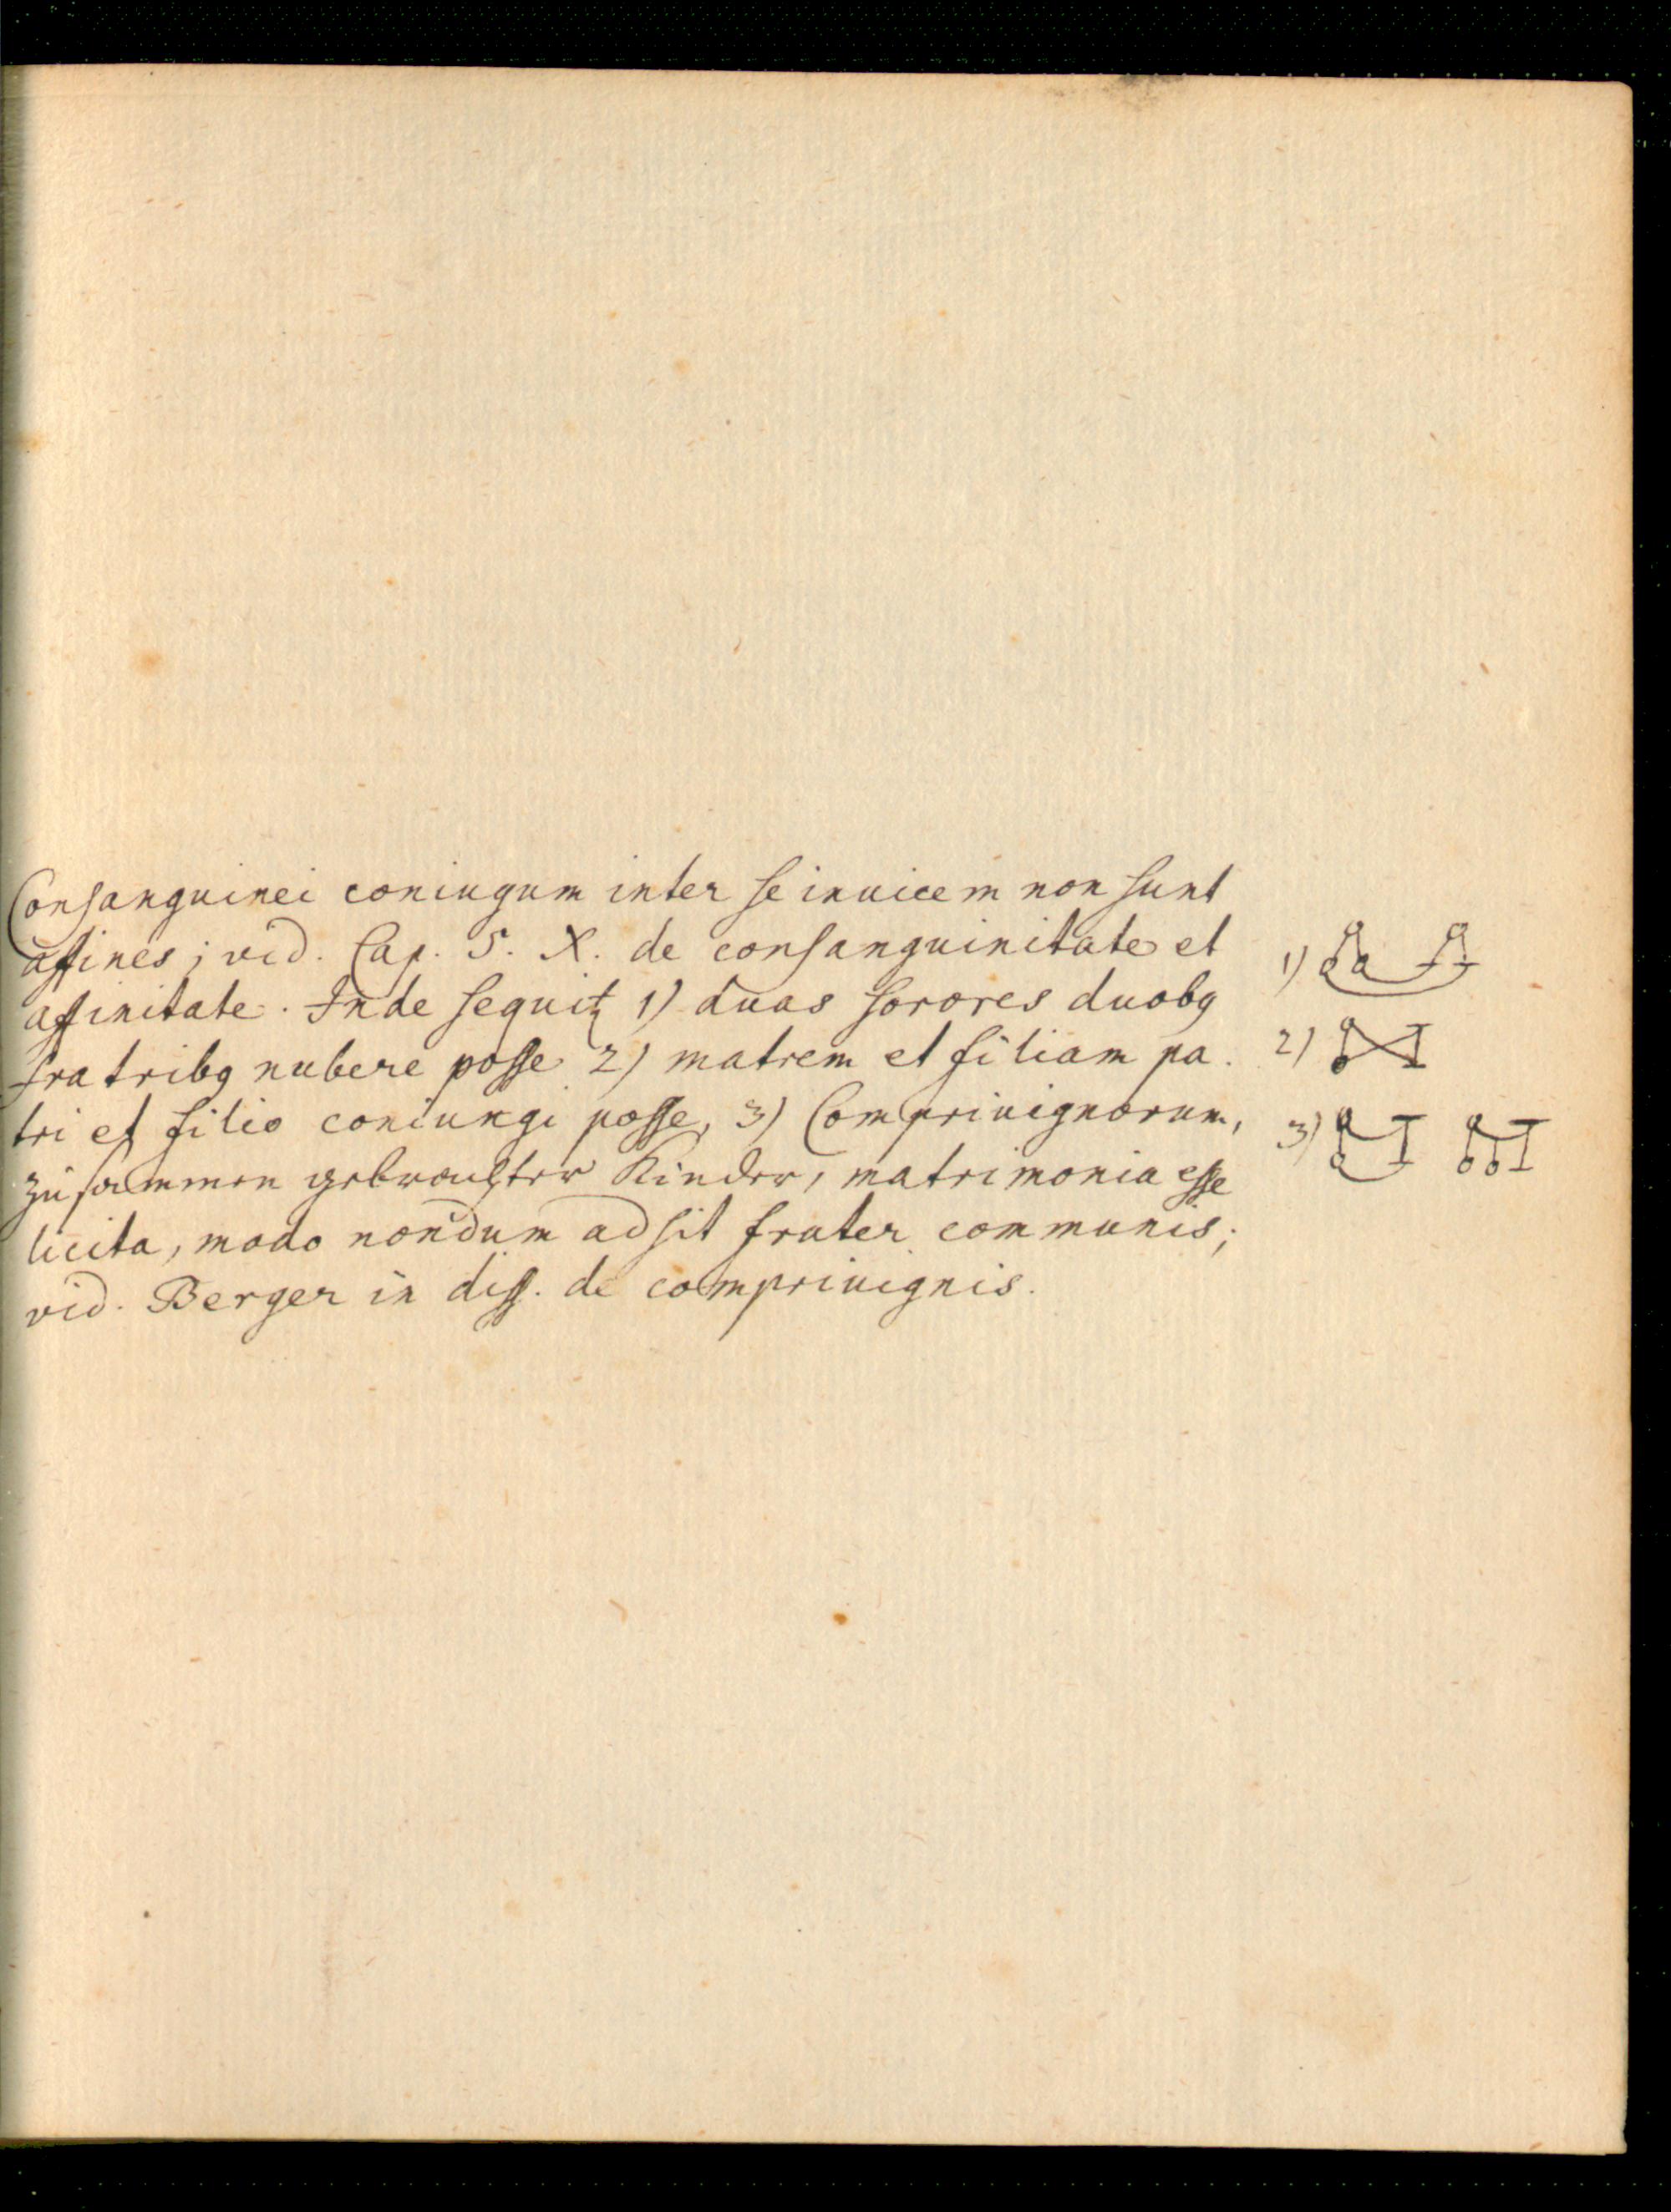 Consanguinei coniugum inter se inuicem non sunt
affines; vid. Cap. 5. X. de consanguinitate et
affinitate. Inde sequitꝛ 1) duas sorores duobꝯ
fratribꝯ nubere posse 2) matrem et filiam pa-
tri et filio coniungi posse, 3) Compriuignorum,
zusammen gebrachter Kinder, matrimonia esse
licita, modo nondum adsit frater communis;
vid. Berger in diss. de compriuignis.
1)
2)
3)